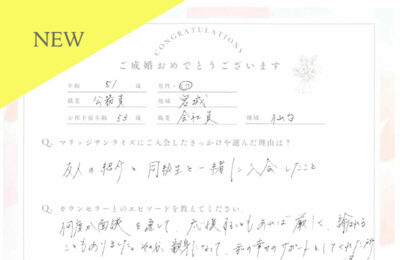 NEW
CONGRATULATIONS
ご成婚おめでとうございます
年齢 51 歳 男性・女性
職業 公務員 地域 宮城
お相手様年齢 53 歳 職業 会社員 地域 仙台
Q. マリッジサンライズにご入会したきっかけや選んだ理由は?
友人の紹介と同級生と一緒に入会したこと
Q. カウンセラーとのエピソードを教えてください。
何度か面談を通して、応援することもあれば厳しく、諭される
こともありました。その分、親身になって、私の幸せのサポートとしてくれた